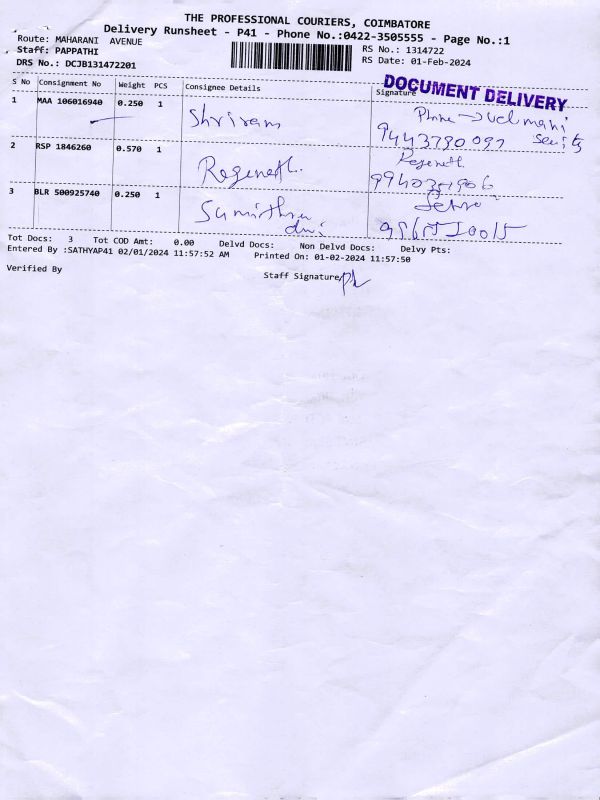 THE PROFESSIONAL COURIERS, COIMBATORE
Delivery Runsheet - P41 - Phone No.:0422-3505555 - Page No.:1
Route: MAHARANI AVENUE
RS No.: 1314722
Staff: PAPPATHI
RS Date: 01-Feb-2024
DRS No.: DCJB131472201
DOCUMENT DELIVERY
S No Consignment No Weight PCS Consignee Details Signature
1 MAA 106016940 0.250 1 Shriram
Phone → Velmani
9443790097
2 RSP 1846260 0.570 1 Regeneth.
Regeneth.
3 BLR 500925740 0.250 1 Sumithra
Tot Docs: 3 Tot COD Amt: 0.00 Delvd Docs: Non Delvd Docs: Delvy Pts:
Entered By :SATHYAP41 02/01/2024 11:57:52 AM Printed On: 01-02-2024 11:57:50
Verified By
Staff Signature